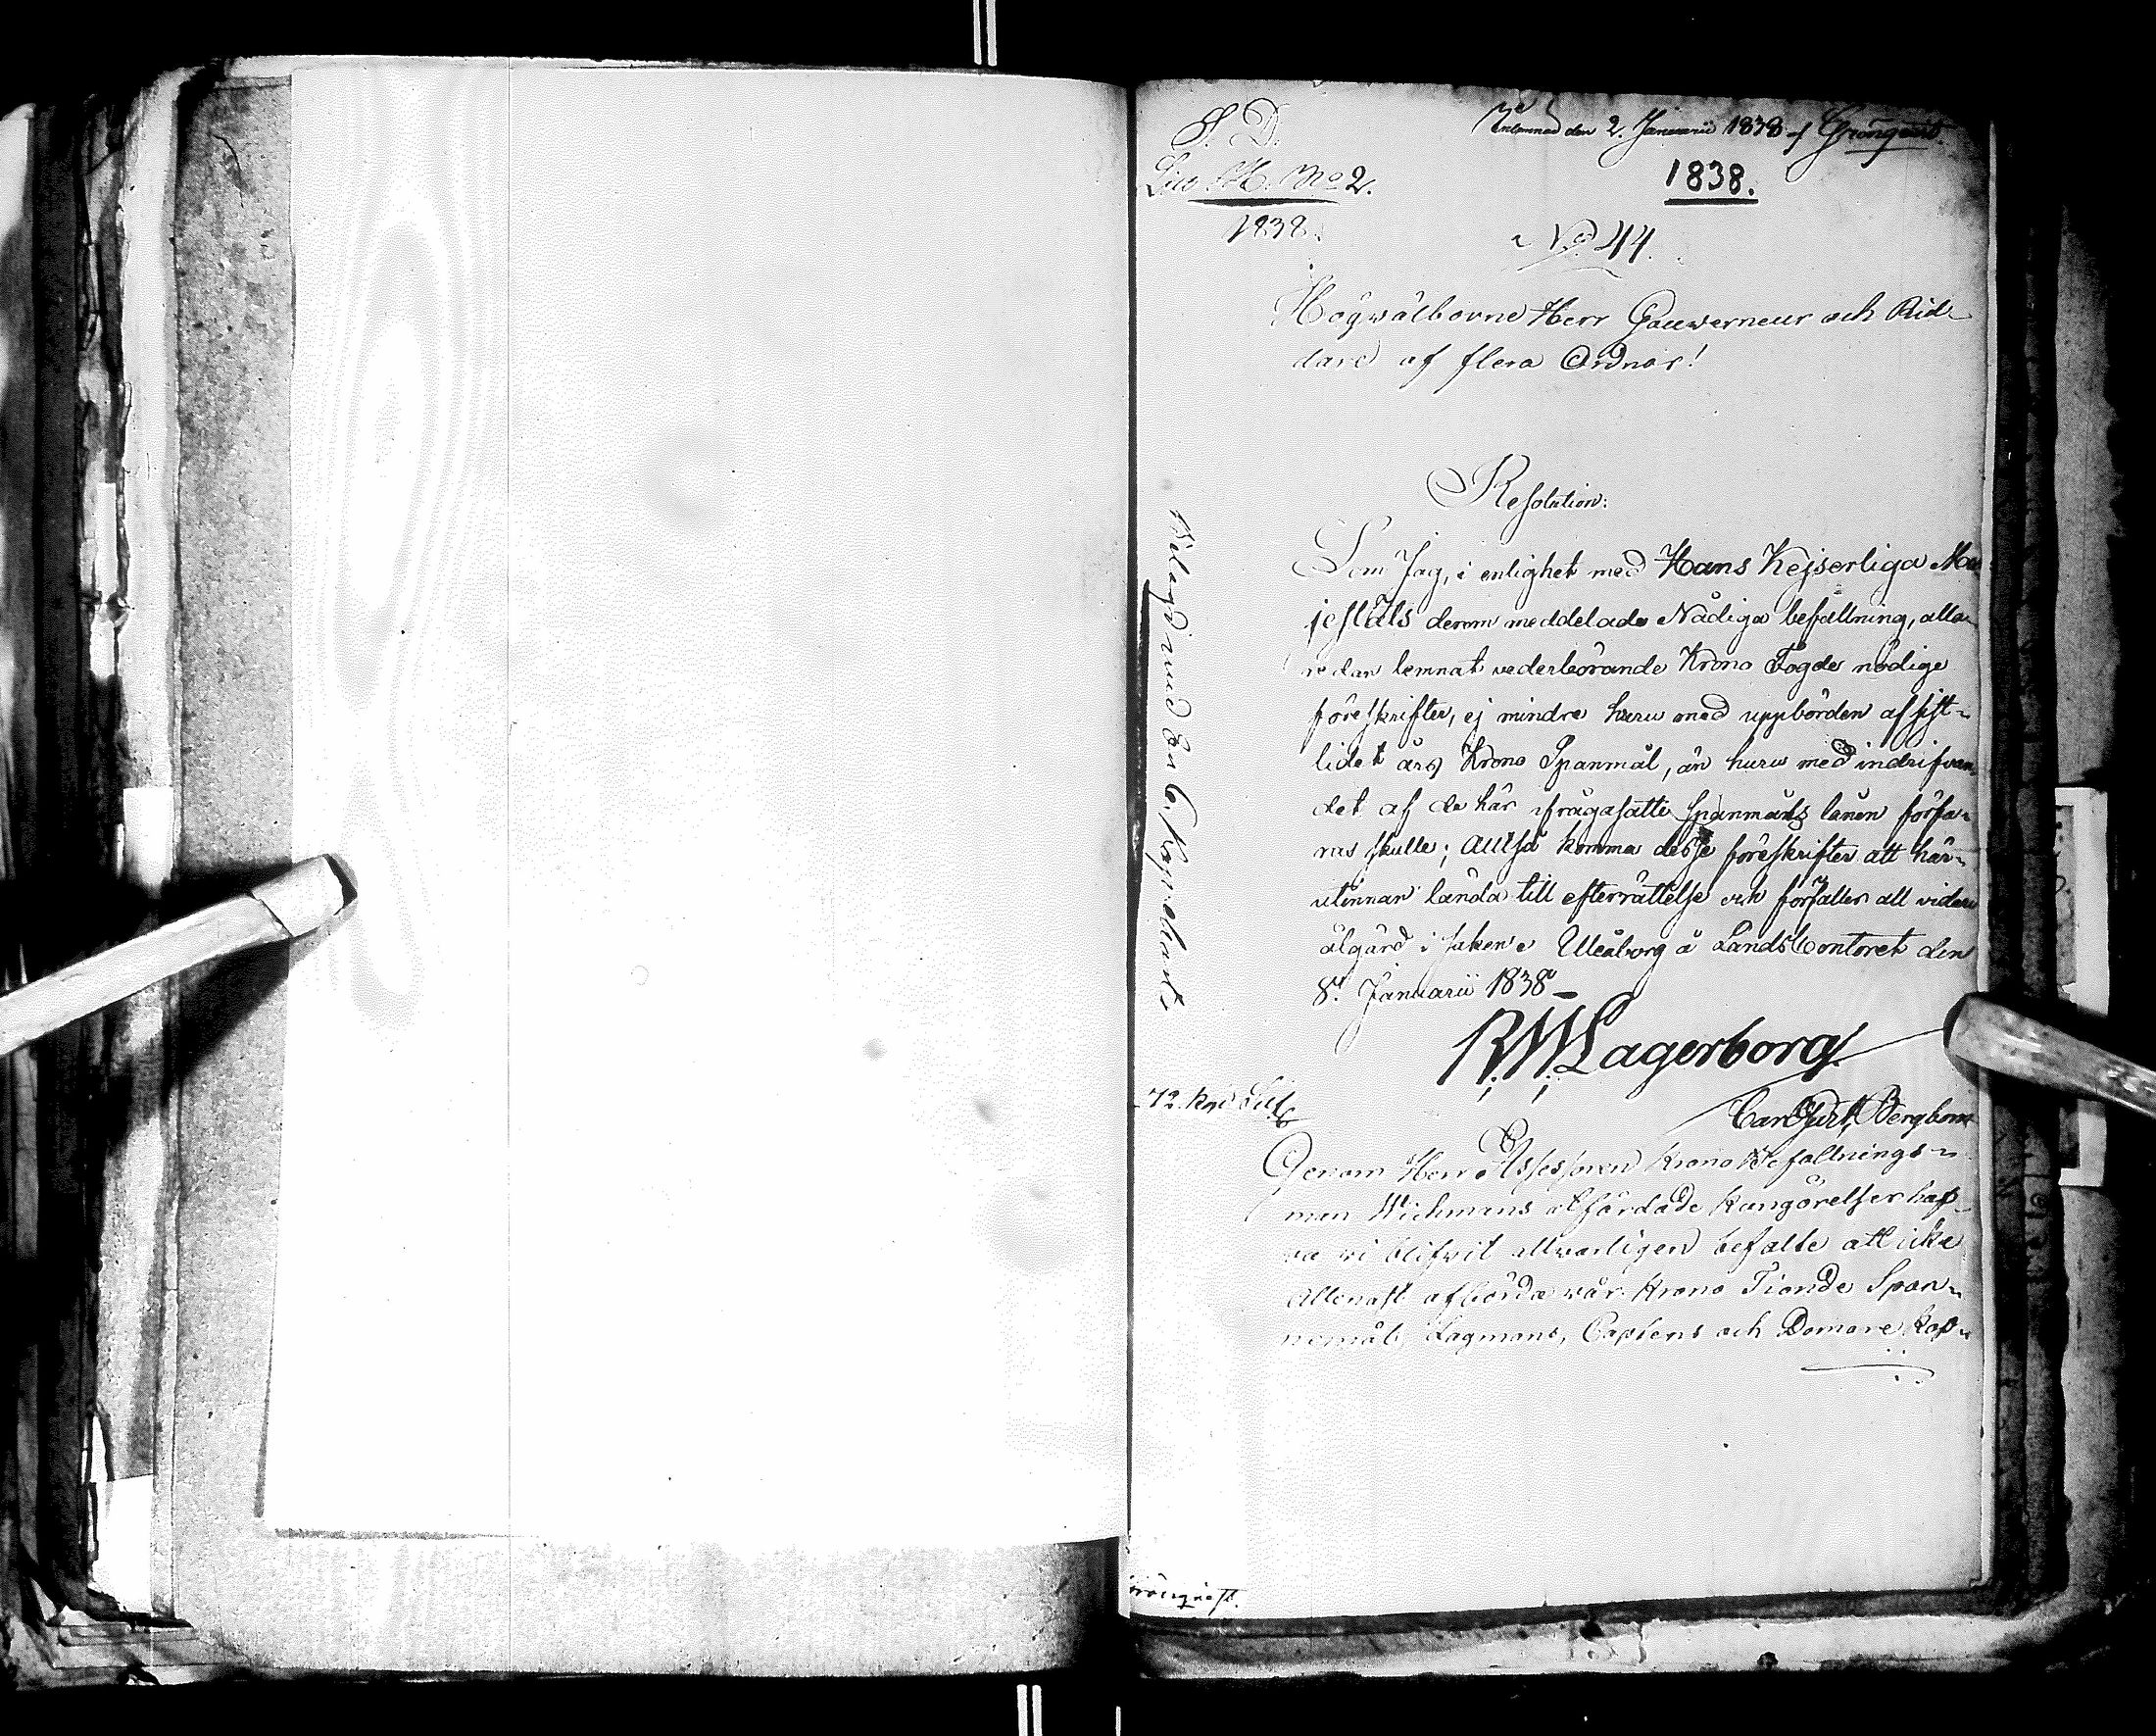 S. D.
Litt H. No 2.
1838.
Inlemnad den 2. Januarii 1838 af Grönqvist.
1838.
No 44.
Högwälborne Herr Gouwerneur och Rid-
dare af flera Ordnar!
Resolution:
Som Jag, i enlighet med Hans Kejserliga Ma-
jestäts derom meddelade Nådiga befallning, alla-
redan lemnat vederbörande Krono Fogde nödige
föreskrifter, ej mindre huru med uppbörden af sist-
lidet års Krono Spanmål, än huru med indrifvan-
det af de här ifrågasatte spanmåls lånen förfa-
ras skulle; Alltså komma desse föreskrifter att här-
utinnan lända till efterrättelse och förfaller all vidare
åtgärd i saken. Uleåborg å LandsContoret den
8. Januarii 1838
R. W. Lagerborg
Carl Gust. Bergbom
72. kop. Silf
Genom Herr Assessoren Krono Befallnings-
man Wichmans utfärdade kungörelser haf-
va vi blifvit allvarligen befalte att icke
Allenast afbörda vår Krono Tionde Span-
nemål, Lagmans, Captens och Domare Kap-
Bilagd med En 6. Kop. chart.
rönqvist.